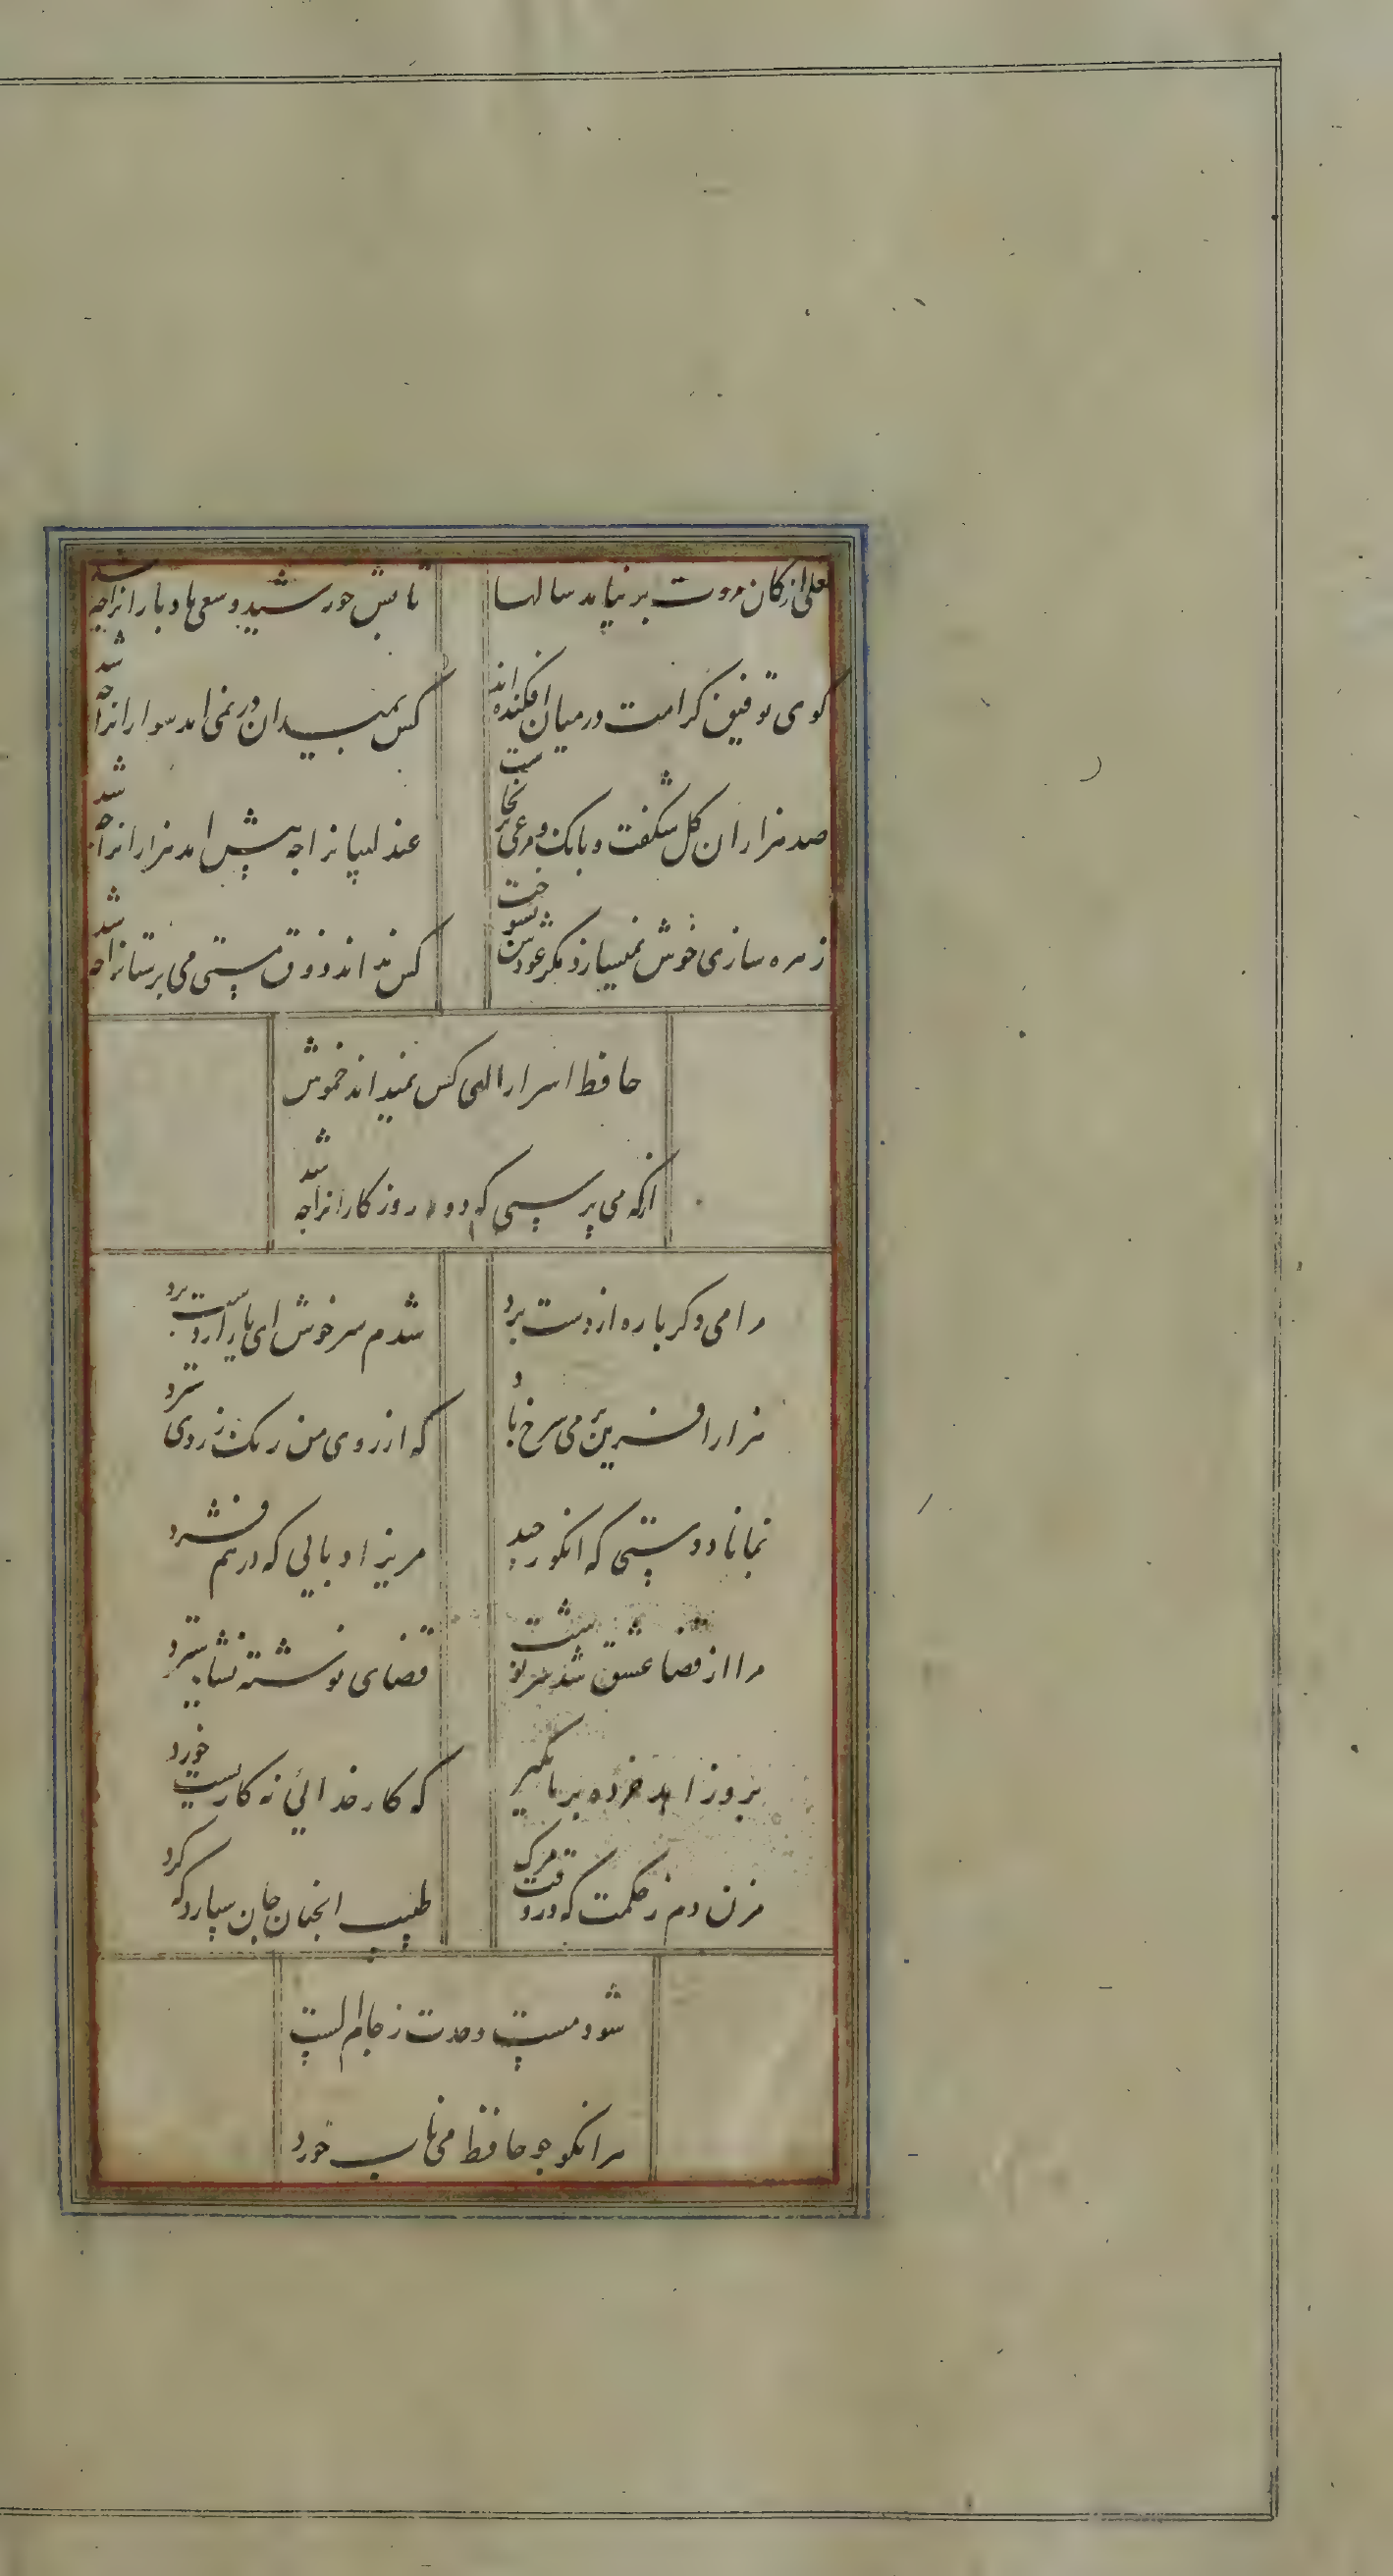 لعلی از کان مروت بر نیامد سالها
تابش خورشید و سعی باد و بارانرا چه شد
کوی توفیق کرامت در میان افکنده اند
کس بمیدان در نمی امد سوارانرا چه شد
صد هزاران کل شکفت و بانک مرغی بر نخاست
عندلیبانرا چه پیش امد هزارانرا چه شد
زهره سازی خوش نمیسازد مکر عودش بسوخت
کس نداند ذوق مستی می پرستانرا چه شد
حافظ اسرار الهی کس نمیداند خموش
از که می پرسی که دور روزکارانرا چه شد
مرا می دکر باره از دست برد
شدم سرخوش ای یار آرد ست برد
هزار افرین بر می سرخ باد
که از روی من رنک زردی سترد
نماناد دستی که انکور چید
مریزاد پایی که در هم فشرد
مرا از قضا عشق شد سرنوشت
قضای نوشته نشاید سترد
برو زاهد خرده بر ما مکیر
که کار خدائی نه کاریست خورد
مزن دم ز حکمت که در وقت مرک
طبیب انچنان جان سپارد که کرد
شود مست وحدت ز جام الست
هر انکو چو حافظ می ناب خورد